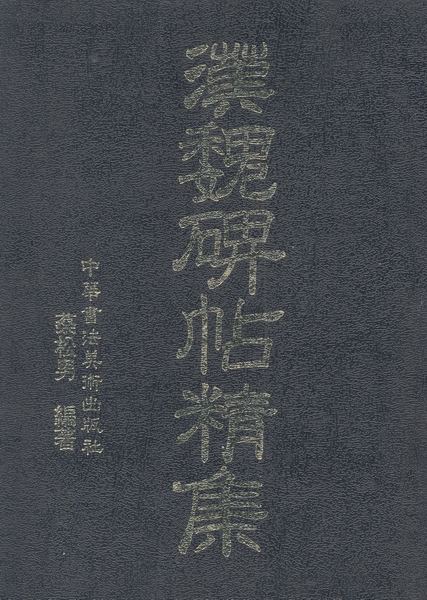 漢魏碑帖精集
中華書法美術出版社
蔡松男 編著